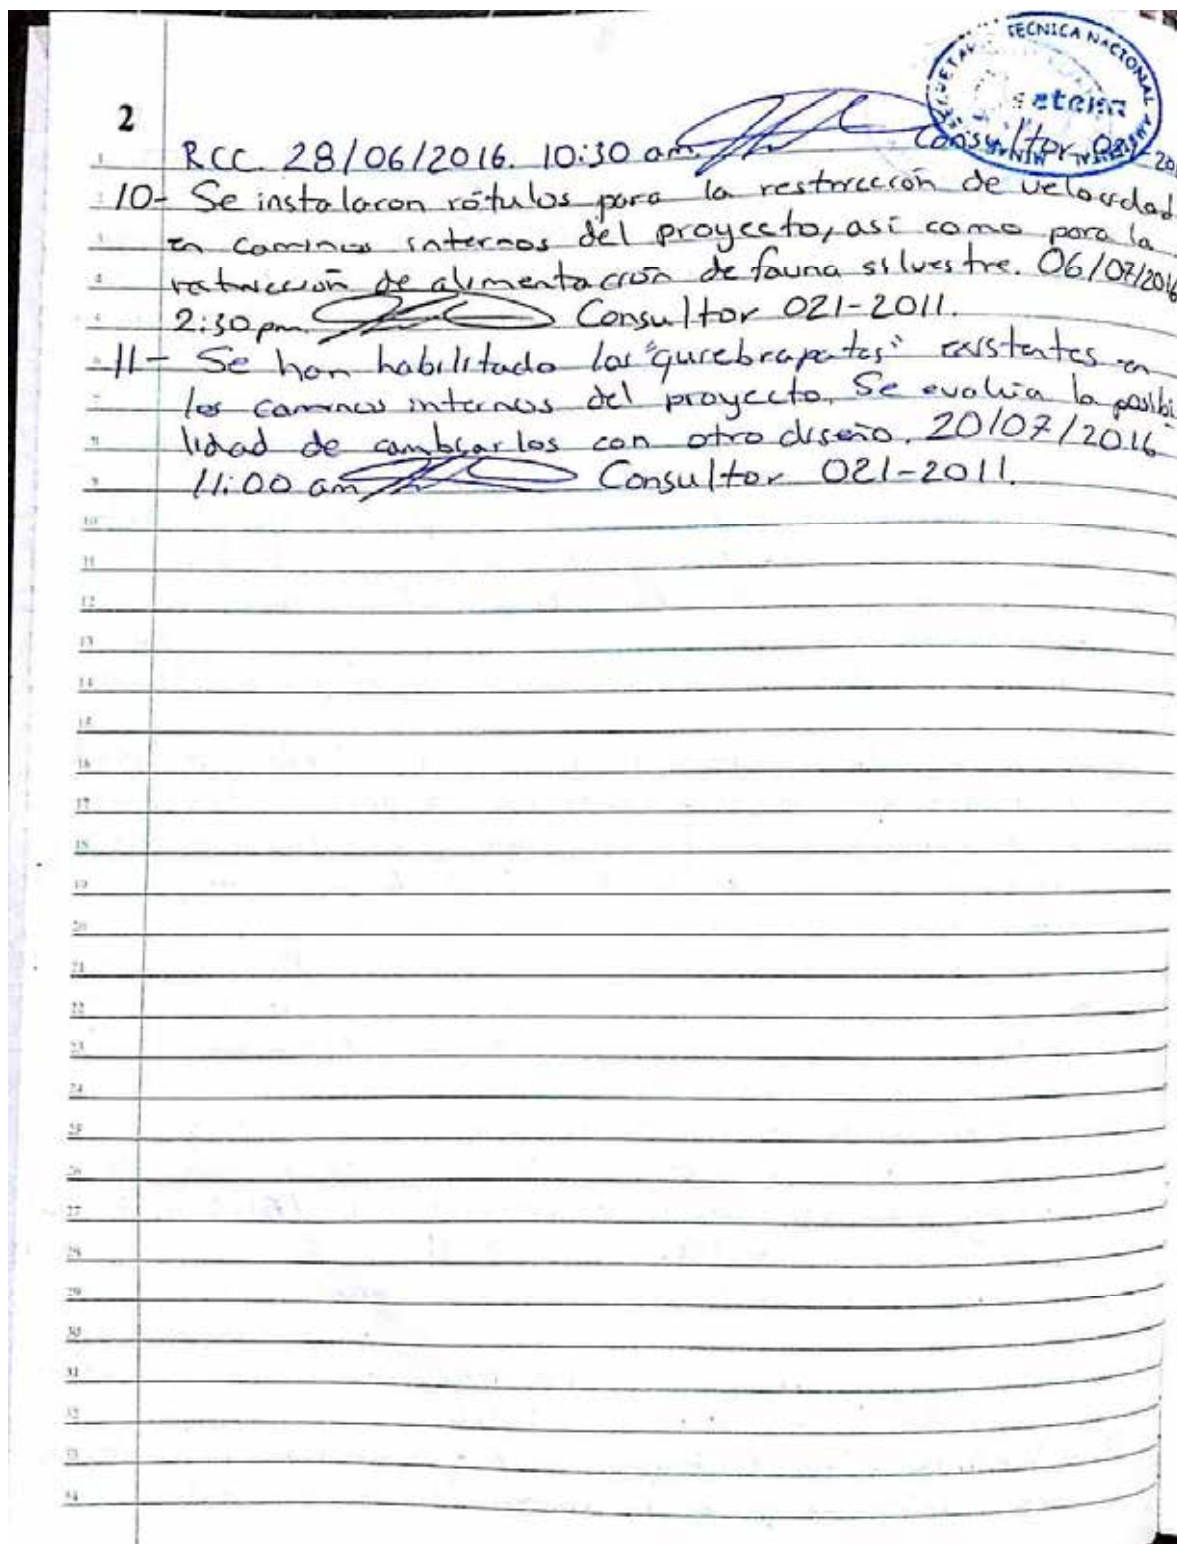 SECRETARIA TECNICA NACIONAL AMBIENTAL MINAE
setena
2
1 RCC. 28/06/2016. 10:30 am. Consultor 021-201
2 10- Se instalaron rótulos para la restricción de velocidad
3 en caminos internos del proyecto, así como para la
4 restricción de alimentación de fauna silvestre. 06/07/2016
5 2:30 pm. Consultor 021-2011.
6 11- Se han habilitado los "quiebrapatas" existentes en
7 los caminos internos del proyecto. Se evalúa la posibi
8 lidad de cambiarlos con otro diseño. 20/07/2016
9 11:00 am Consultor 021-2011.
10
11
12
13
14
15
16
17
18
19
20
21
22
23
24
25
26
27
28
29
30
31
32
33
34